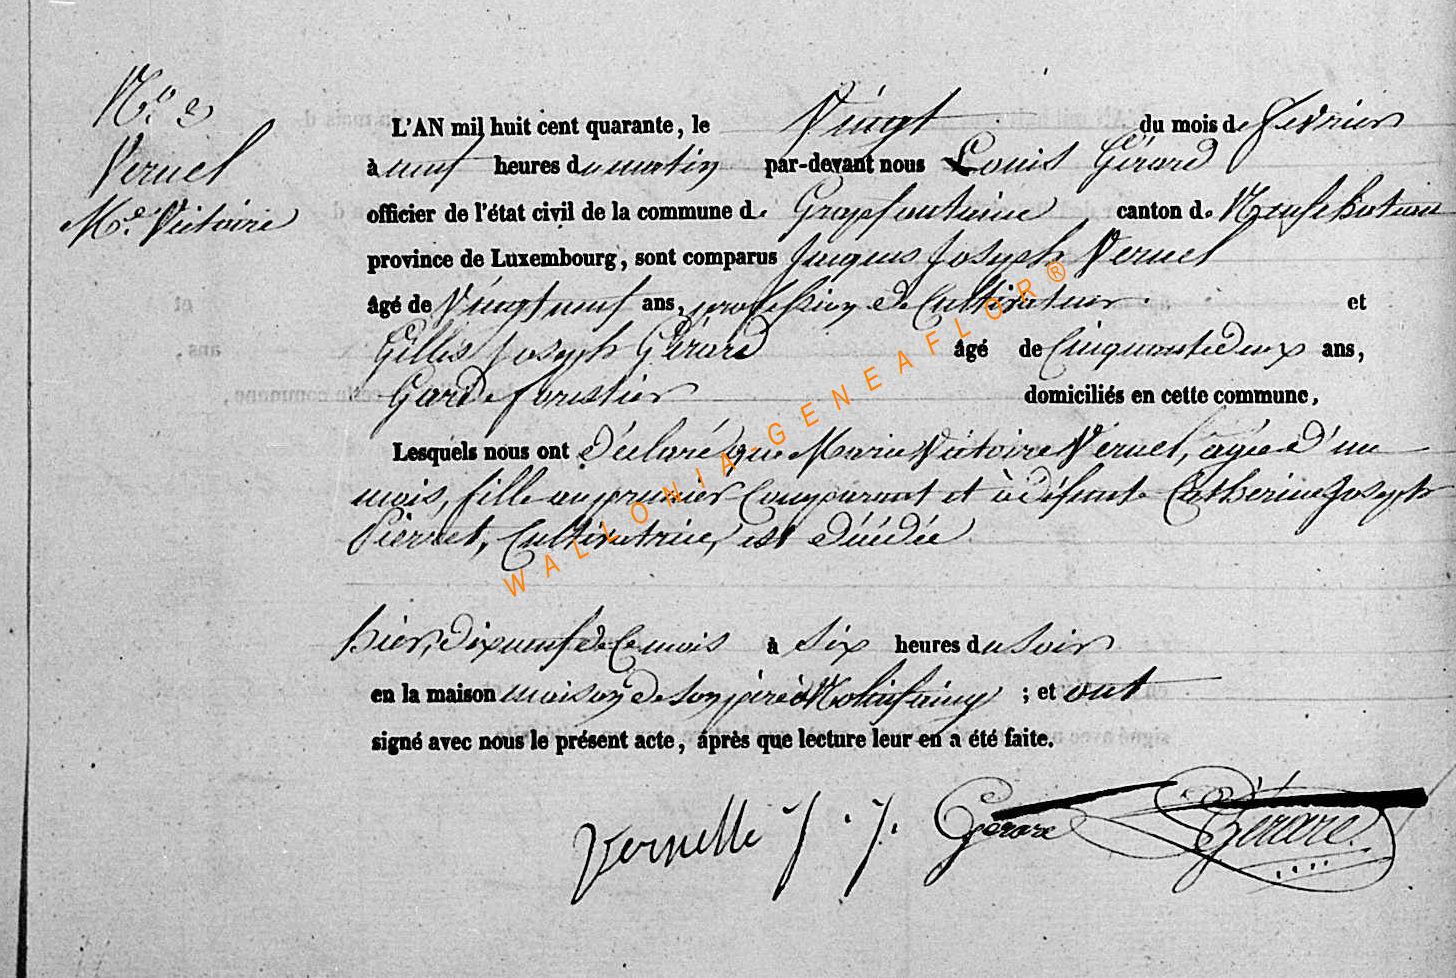 N.º 2
Vernel
M.e Victoire
L'AN mil huit cent quarante, le Vingt du mois de fevrier
à neuf heures du matin par-devant nous Louis Gérard
officier de l'état civil de la commune de Grapfontaine, canton de Neufchateau
province de Luxembourg, sont comparus Jacques Joseph Vernel
âgé de Vingt neuf ans, profession de Cultivateur. et
Gilles Joseph Gérard âgé de Cinquante deux ans,
Garde forestier domiciliés en cette commune,
Lesquels nous ont déclaré que Marie Victoire Vernel, agée d'un
mois, fille au premier Comparant et à défunte Catherine Joseph
Pierret, Cultivatrice, est décédée
hier, dix neuf de Ce mois à Six heures du Soir
en la maison maison de son père à Molinfaing ; et ont
signé avec nous le présent acte, après que lecture leur en a été faite.
Vernelle J. J. Gerard Gerard
WALLONIA-GENEAFLOR®